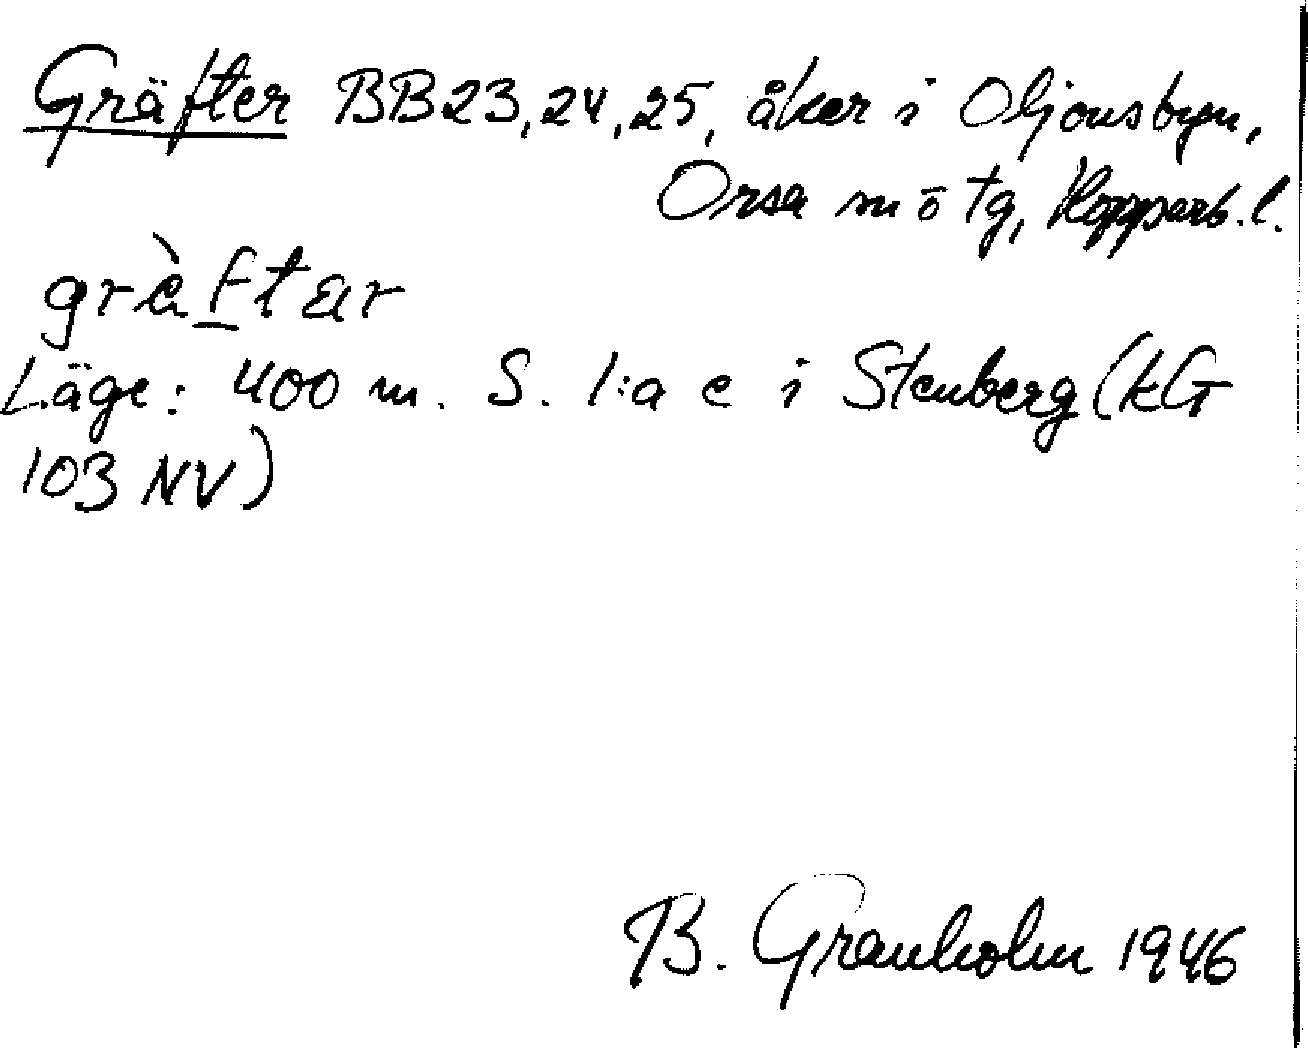 Gräfter BB23,24,25, åker i Oljonsbyn,
Orsa sn ö tg, Kopparb. l.
grä̀ftär
Läge: 400 m. S. l:a e i Stenberg (kG
103 NV)
B. Granholm 1946